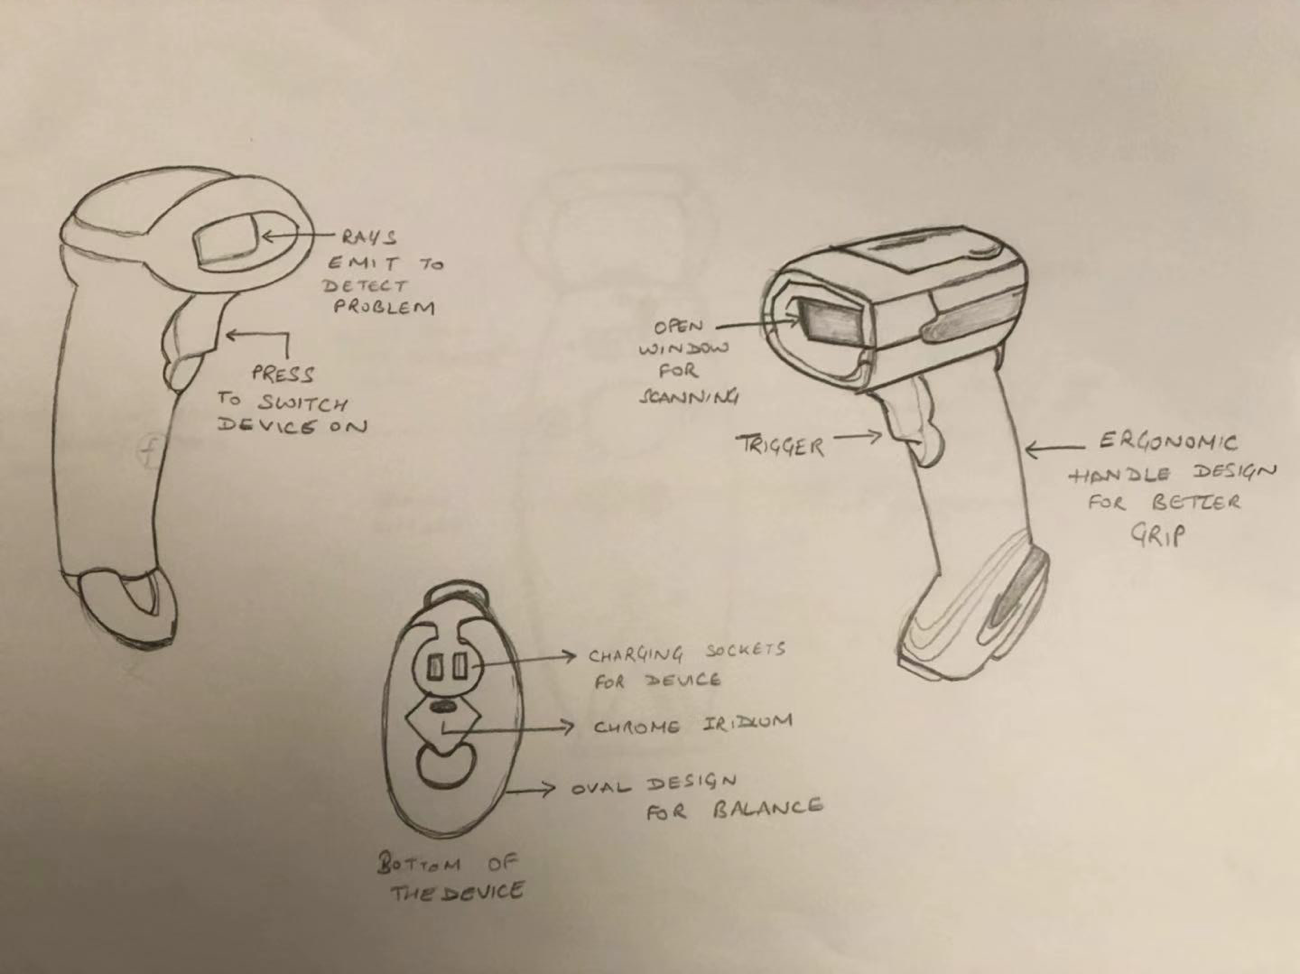 RAYS
EMIT TO
DETECT
PROBLEM
PRESS
TO SWITCH
DEVICE ON
OPEN
WINDOW
FOR
SCANNING
TRIGGER
ERGONOMIC
HANDLE DESIGN
FOR BETTER
GRIP
CHARGING SOCKETS
FOR DEVICE
CHROME IRIDIUM
OVAL DESIGN
FOR BALANCE
BOTTOM OF
THE DEVICE